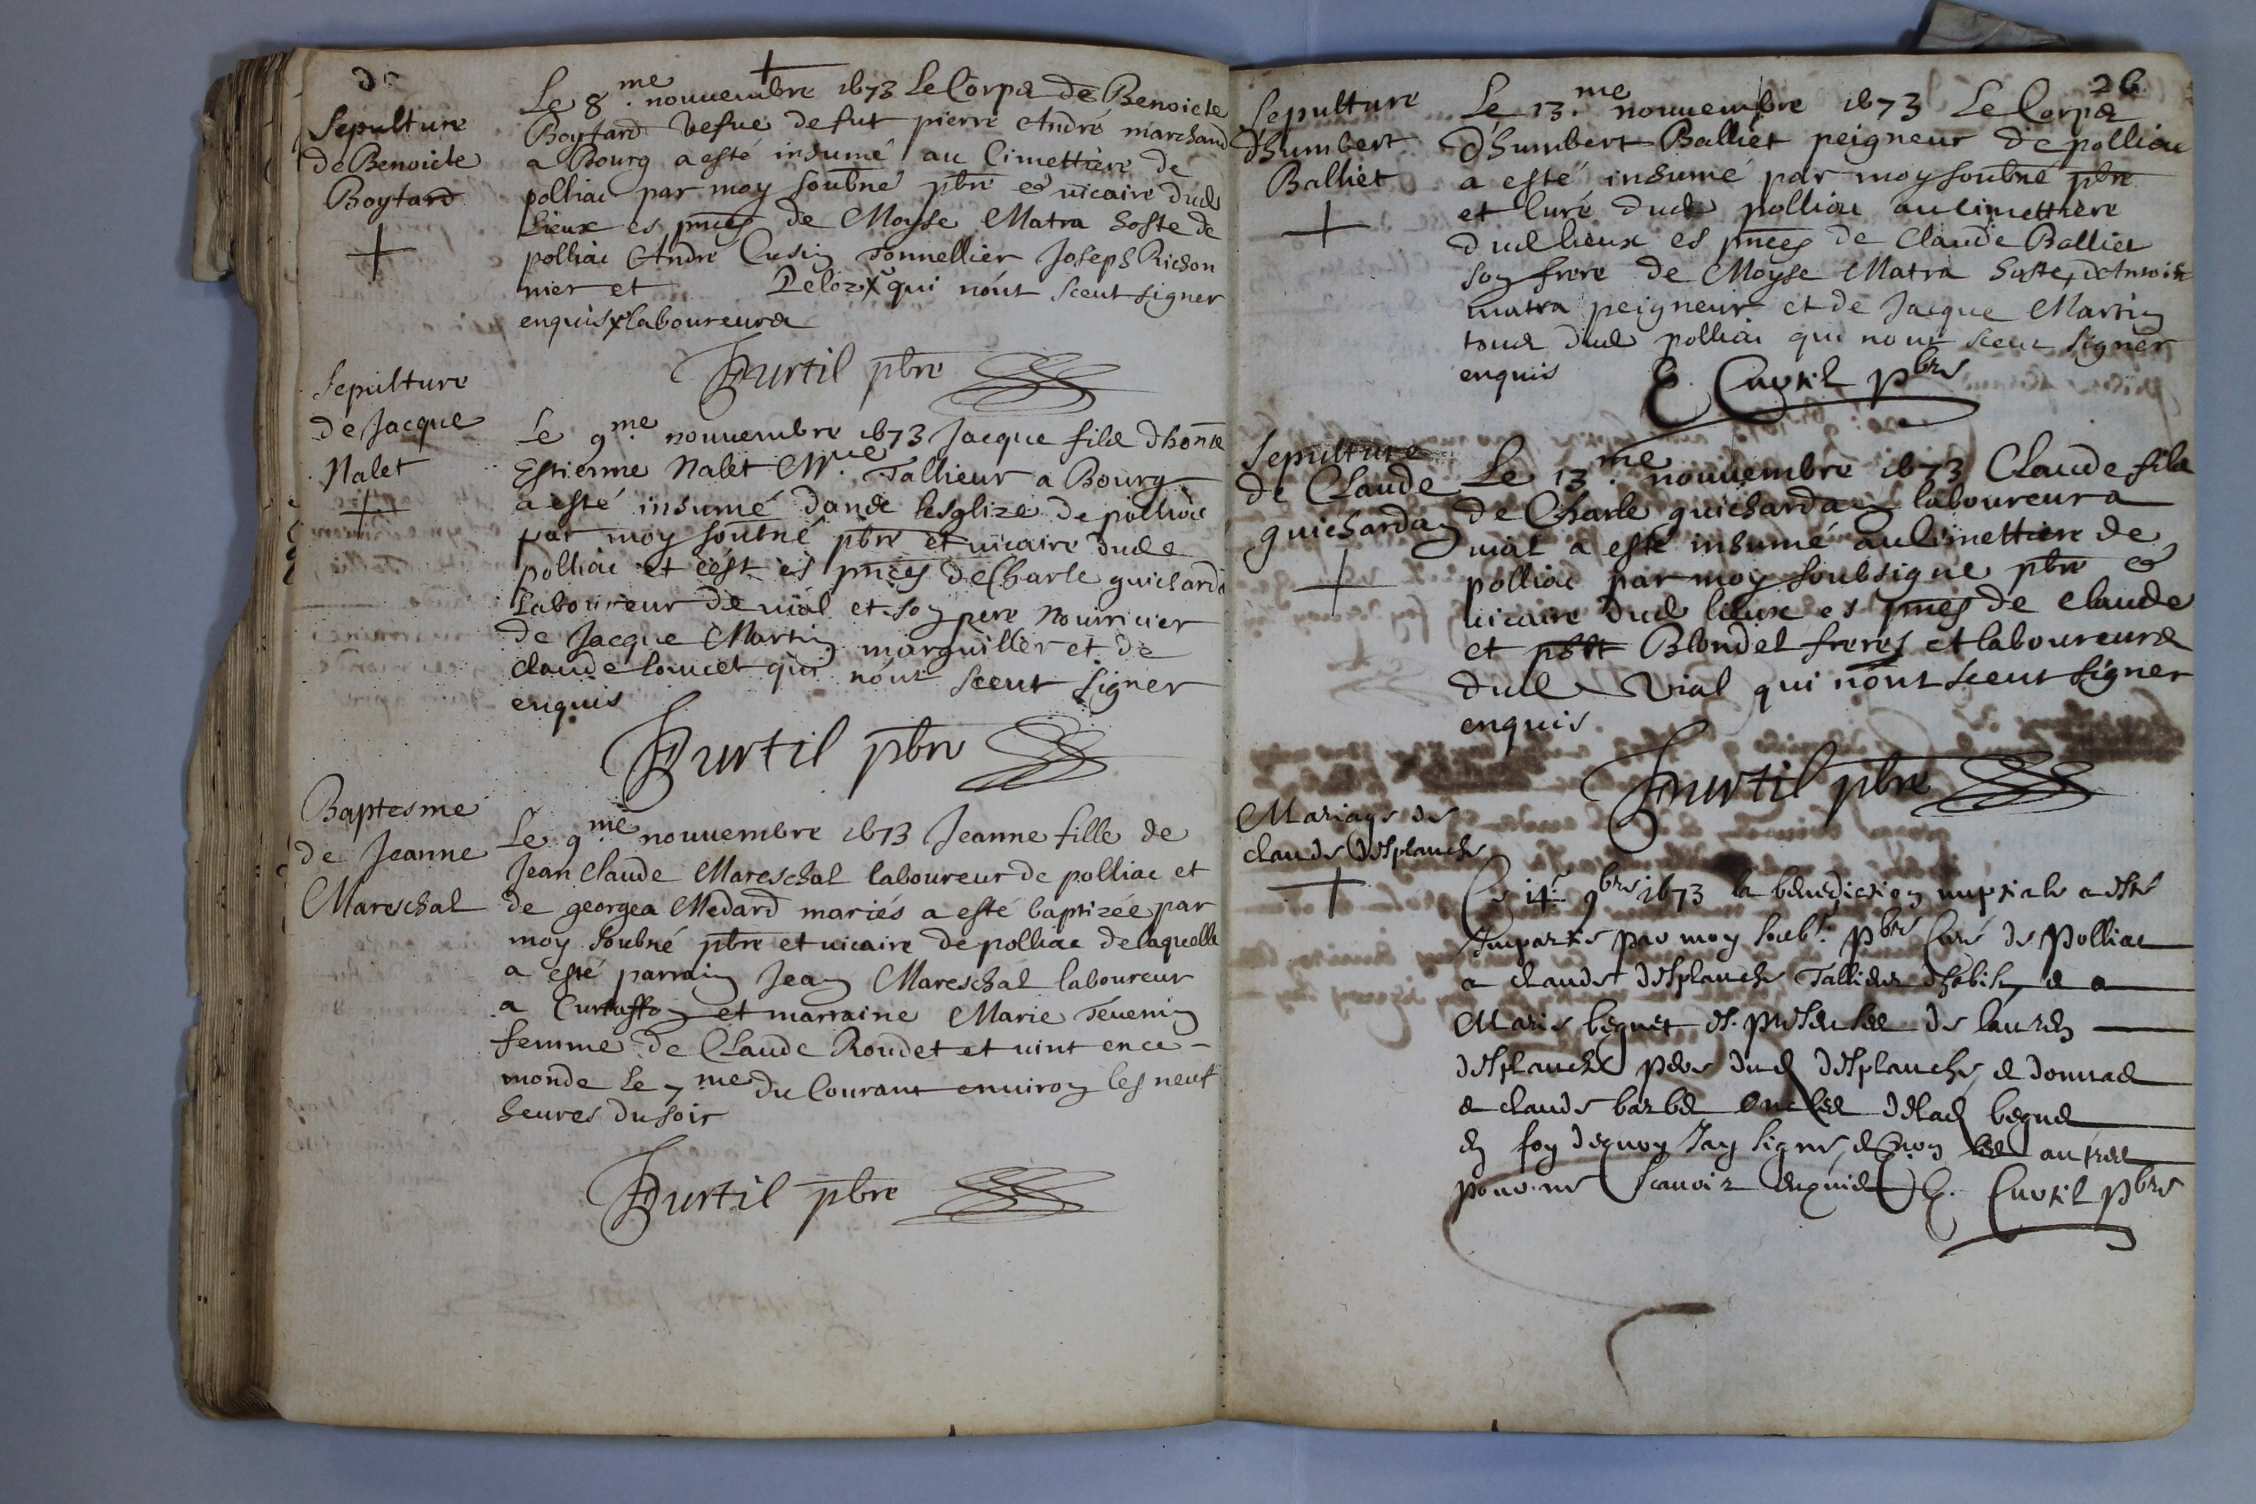 Sepulture
de Benoicte
Boytard
Le 8.me nouuembre 1673 Le Corps de Benoicte
Boytard vefue de fut pierre André marchand
a Bourg a esté inhumé au Cimettiere de
polliac par moy soubné pbre et uicaire dud
Lieux es pnces de Moyse Matra hoste de
polliac André Cusin Tonnellier Joseph Richon
nier et Peloz x qui nont sceut signer
enquis x laboureurs
Curtil pbre
Sepulture
de Jacque
Nalet
Le 9.me nouuembre 1673 Jacque fils dhonte
Estienne Nalet Mre Tallieur a Bourg
a esté inhumé dans lesglize de polliac
par moy soubné pbre et uicaire dud
polliac et cest es pnces de Charle guichard
Laboureur de uial et son pere nourricier
de Jacque Martin marguillier et de
claude Loucet qui nont sceut signer
enquis
Curtil pbre
Baptesme
de Jeanne
Mareschal
Le 9.me nouuembre 1673 Jeanne fille de
Jean Claude Mareschal laboureur de polliac et
de georgea Medard mariés a esté baptizée par
moy soubné pbre et uicaire de polliac de laquelle
a esté parrain Jean Mareschal laboureur
a Curtaffon et marraine Marie Teuenin
femme de Claude Roudet et uint en ce
monde le 7.me du Courant enuiron les neuf
heures du soir
Curtil pbre
26
Sepulture
d'humbert
Balliet
Le 13.me nouuembre 1673 Le Corps
d'humbert Balliet peigneur de polliac
a esté inhumé par moy soubné pbre
et Curé dud polliac au cimettiere
dud lieux es pnces de Claude Balliet
son frere de Moyse Matra hoste, dAntoine
matra peigneur et de Jacque Martin
tous dud polliac qui nont sceut signer
enquis
C. Curtil pbre
Sepulture
de Claude
guichardan
Le 13.me nouuembre 1673 Claude fils
de Charle guichardan laboureur a
uial a esté inhumé au cimettiere de
polliac par moy soubsigne pbre et
uicaire dud lieux es pnces de claude
et pbt Blondel freres et laboureurs
dud Vial qui nont sceut signer
enquis
Curtil pbre
Mariage de
claude desplanche
Ce 14e 9bre 1673 la benediction nuptiale a esté
Impartie par moy soubs. pbre Curé de Polliac
a claude desplanche Tallieur et a
Marie beguet en presence de
desplanche pere dud desplanche et
et claude barbet oncle de lad beguet
En foy dequoy Jay signé et non les autres
pour ne scauoir enquis C. Curtil pbre